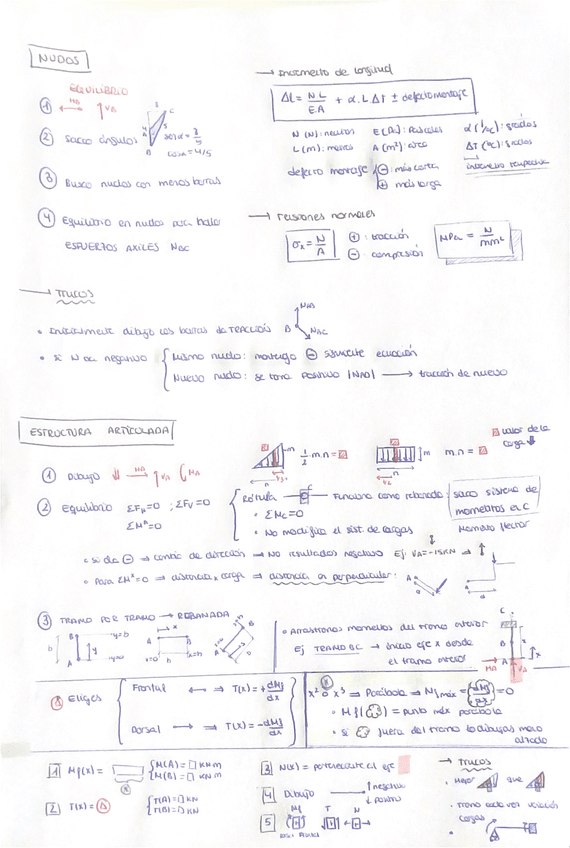 NUDOS
EQUILIBRIO
① HA VA
② Saco ángulos
cos α = 4/5
③ Busco nudos con menos barras
④ Equilibrio en nudos para hallar
ESFUERZOS AXILES NBC
→ Incremento de longitud
ΔL = N.L/E.A + α.L Δt ± defecto montaje
N (N): neutros E (Pa): Pascales α (1/ºC): grados
L (m): metros A (m²): área ΔT (ºC): grados
defecto montaje ⊖: más corta
⊕ más larga
→ Tensiones normales
σx = N/A
⊕: tracción
⊖: compresión
MPa = N/mm²
→ TRUCOS
• Inicialmente dibujo las barras de TRACCIÓN B NAB NBC
• Si N da negativo { Mismo nudo: mantengo ⊖ siguiente ecuación
Nuevo nudo: se toma positivo |NAB| → tracción de nuevo
ESTRUCTURA ARTICULADA
① Dibujo HA VA MA
1/2 m.n =
m.n =
valor de la carga
② Equilibrio ΣFH=0 ; ΣFV=0
ΣMA=0
Rótula C Funciona como rebanada: saco sistema de
momentos en C
• ΣMC=0
Momento flector
• No modifica el sist. de cargas
• Si da ⊖ → cambio de dirección → No resultados negativos Ej VA=-15KN ⇒ ↑
• Para ΣMA=0 → distancia x carga → distancia en perpendicular:
③ TRAMO POR TRAMO → REBANADA
• Arrastramos momentos del tramo anterior
Ej TRAMO BC → inicio eje x desde
el tramo anterior
Eliges
Frontal ⟷ ⇒ T(x) = + dMf/dx
Dorsal ⟷ ⇒ T(x) = - dMf/dx
x² o x³ → Parábola → Mf máx = dMf/dx = 0
• Mf( ) = punto máx parábola
• Si fuera del tramo lo dibujas medio
1 Mf(x) = { M(A) = KN m
M(B) = KN m
2 T(x) = { T(A) = KN
T(B) = KN
3 N(x) =
4 Dibujo negativo
positivo
5 Mf T N
→ TRUCOS
• Mejor que
cargas